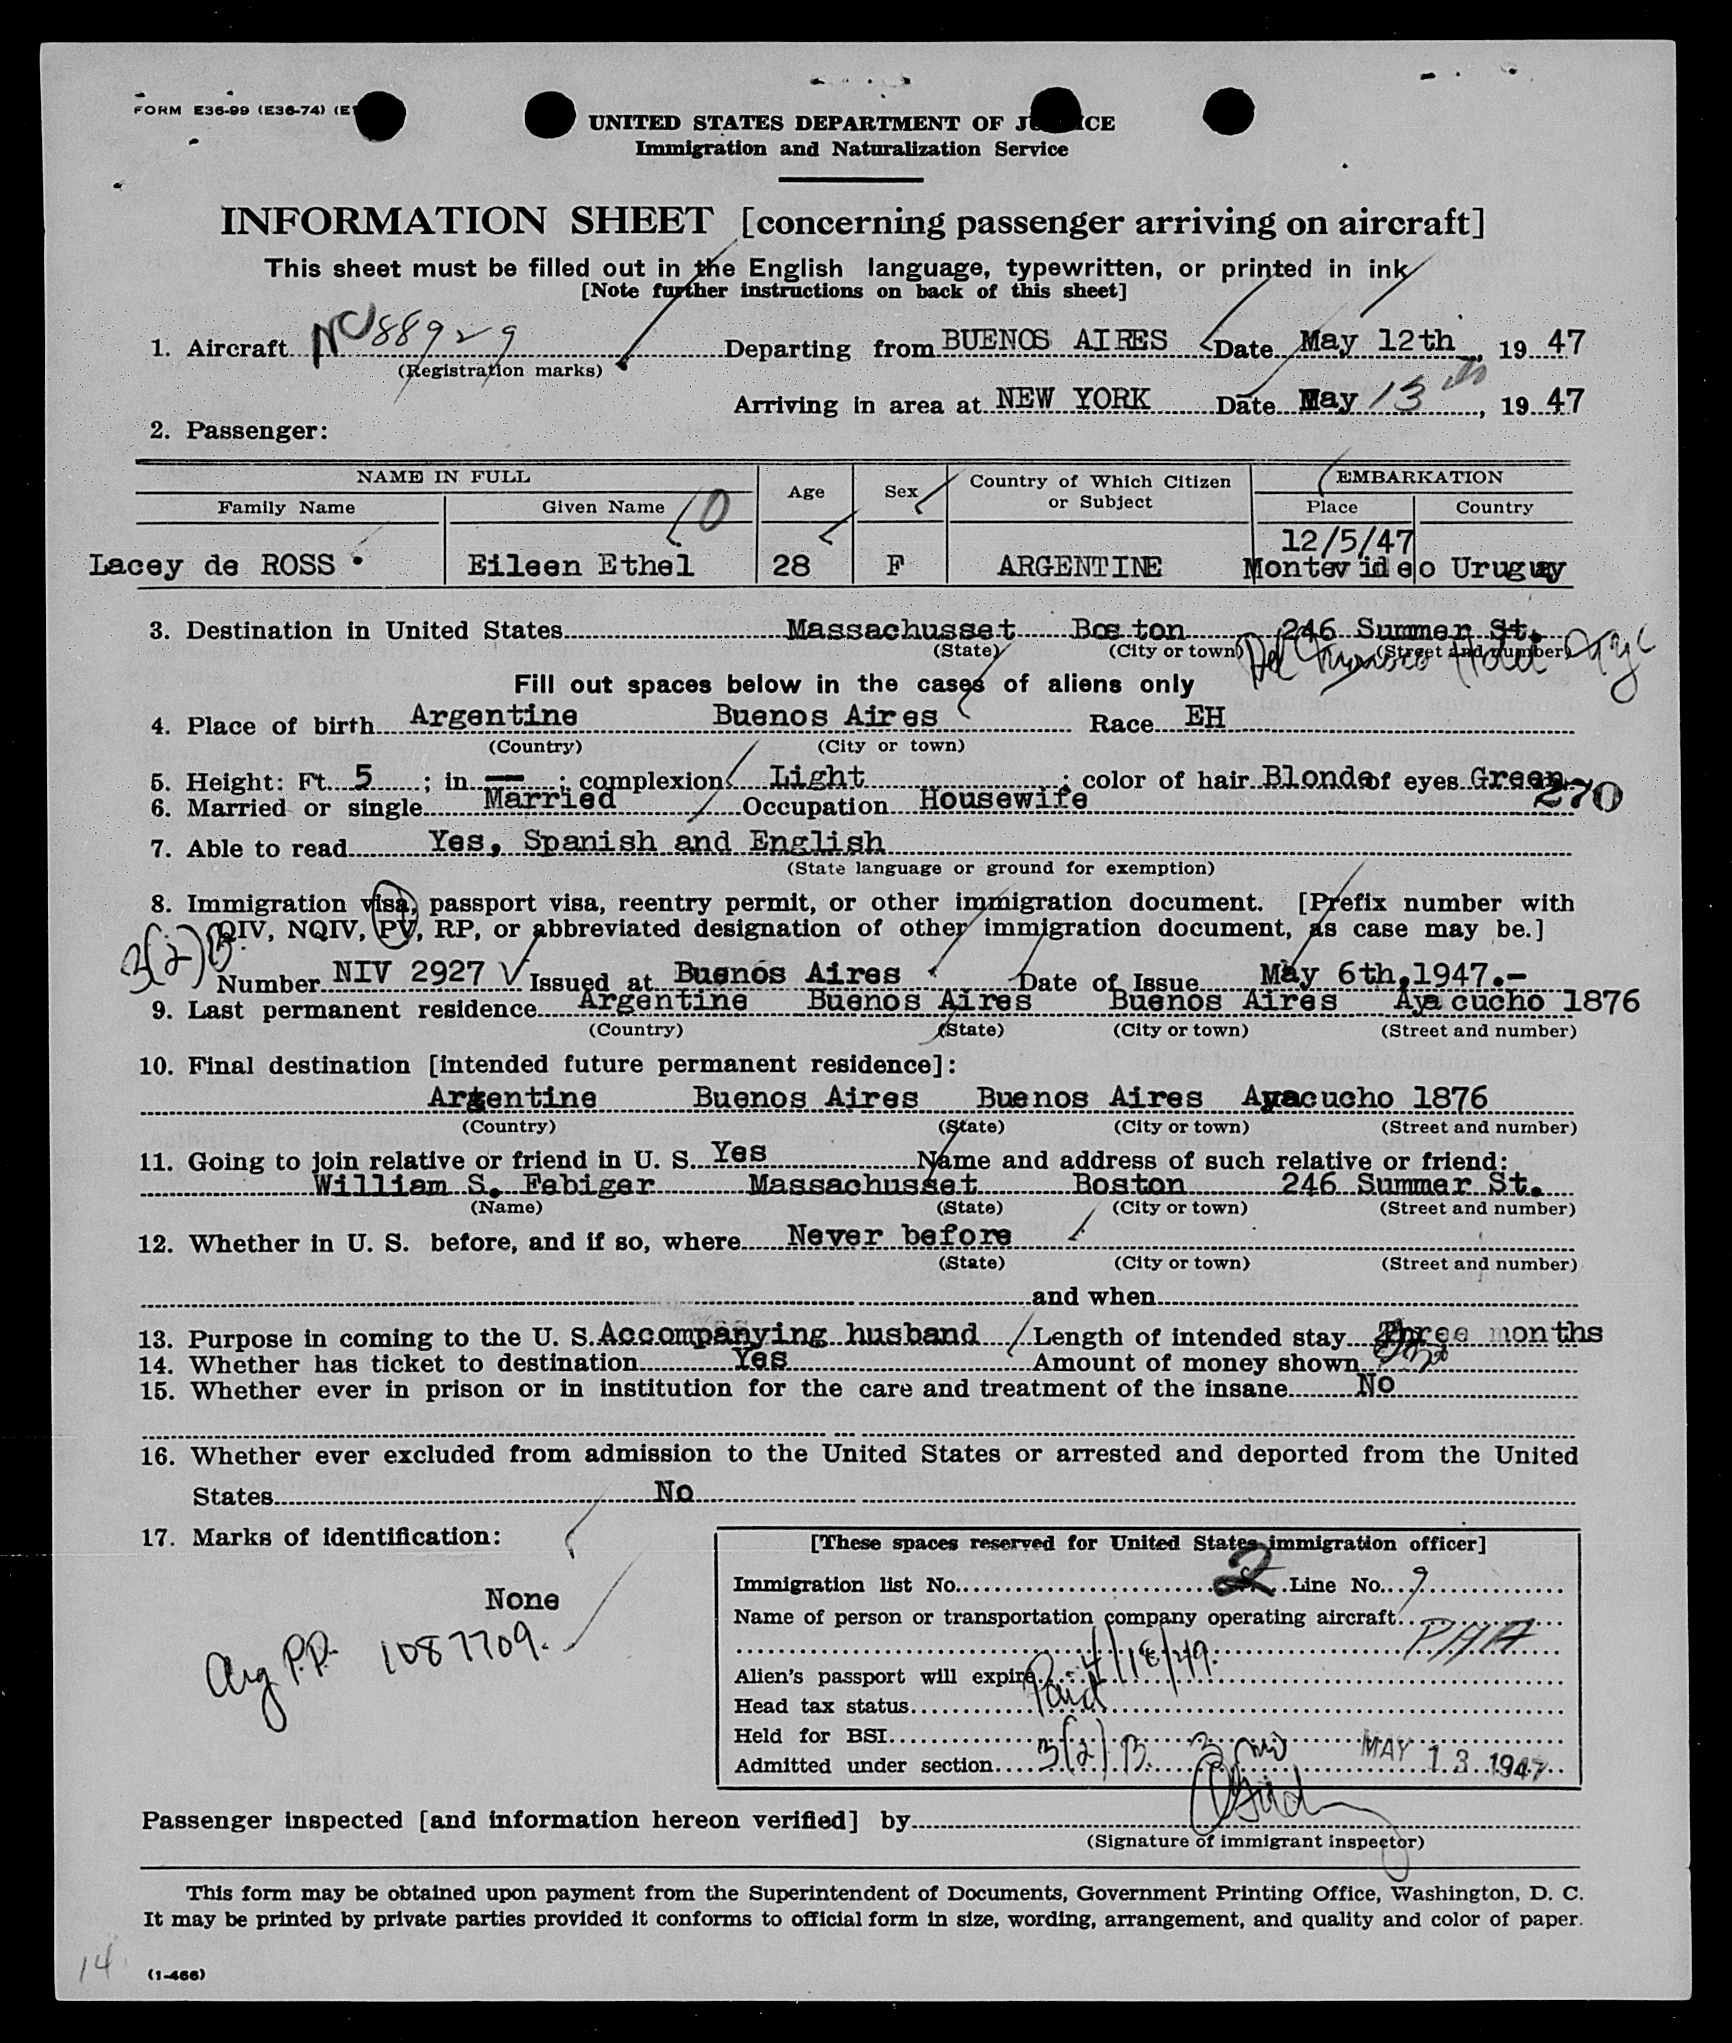 FORM E36-99 (E36-74) (E
UNITED STATES DEPARTMENT OF J CE
Immigration and Naturalization Service
INFORMATION SHEET [concerning passenger arriving on aircraft]
This sheet must be filled out in the English language, typewritten, or printed in ink
[Note further instructions on back of this sheet]
1. Aircraft NC 88929 Departing from BUENOS AIRES Date May 12th, 19 47
(Registration marks)
Arriving in area at NEW YORK Date May 13th, 19 47
2. Passenger:
NAME IN FULL Age Sex Country of Which Citizen or Subject EMBARKATION
Family Name Given Name Place Country
10
12/5/47
Lacey de ROSS Eileen Ethel 28 F ARGENTINE Montevideo Uruguay
3. Destination in United States Massachusset Boston 246 Summer St.
(State) (City or town) (Street and number)
Hotel NYC
Fill out spaces below in the cases of aliens only
4. Place of birth Argentine Buenos Aires Race EH
(Country) (City or town)
5. Height: Ft. 5 ; in. — ; complexion Light ; color of hair Blonde of eyes Green
270
6. Married or single Married Occupation Housewife
7. Able to read Yes, Spanish and English
(State language or ground for exemption)
8. Immigration visa, passport visa, reentry permit, or other immigration document. [Prefix number with
QIV, NQIV, PV, RP, or abbreviated designation of other immigration document, as case may be.]
3(2)B
Number NIV 2927 Issued at Buenos Aires Date of Issue May 6th,1947.-
9. Last permanent residence Argentine Buenos Aires Buenos Aires Ayacucho 1876
(Country) (State) (City or town) (Street and number)
10. Final destination [intended future permanent residence]:
Argentine Buenos Aires Buenos Aires Ayacucho 1876
(Country) (State) (City or town) (Street and number)
11. Going to join relative or friend in U. S. Yes Name and address of such relative or friend:
William S. Febiger Massachusset Boston 246 Summer St.
(Name) (State) (City or town) (Street and number)
12. Whether in U. S. before, and if so, where Never before
(State) (City or town) (Street and number)
and when
13. Purpose in coming to the U. S. Accompanying husband Length of intended stay Three months
14. Whether has ticket to destination Yes Amount of money shown
15. Whether ever in prison or in institution for the care and treatment of the insane No
16. Whether ever excluded from admission to the United States or arrested and deported from the United
States No
17. Marks of identification:
None
Arg P.P. 1087709.
[These spaces reserved for United States immigration officer]
Immigration list No. 2 Line No. 9
Name of person or transportation company operating aircraft
PAA
Alien's passport will expire 4/18/49.
Head tax status Paid
Held for BSI
Admitted under section 3(2) B. 3 mo MAY 13 1947
Passenger inspected [and information hereon verified] by
(Signature of immigrant inspector)
This form may be obtained upon payment from the Superintendent of Documents, Government Printing Office, Washington, D. C.
It may be printed by private parties provided it conforms to official form in size, wording, arrangement, and quality and color of paper.
14
(1-466)